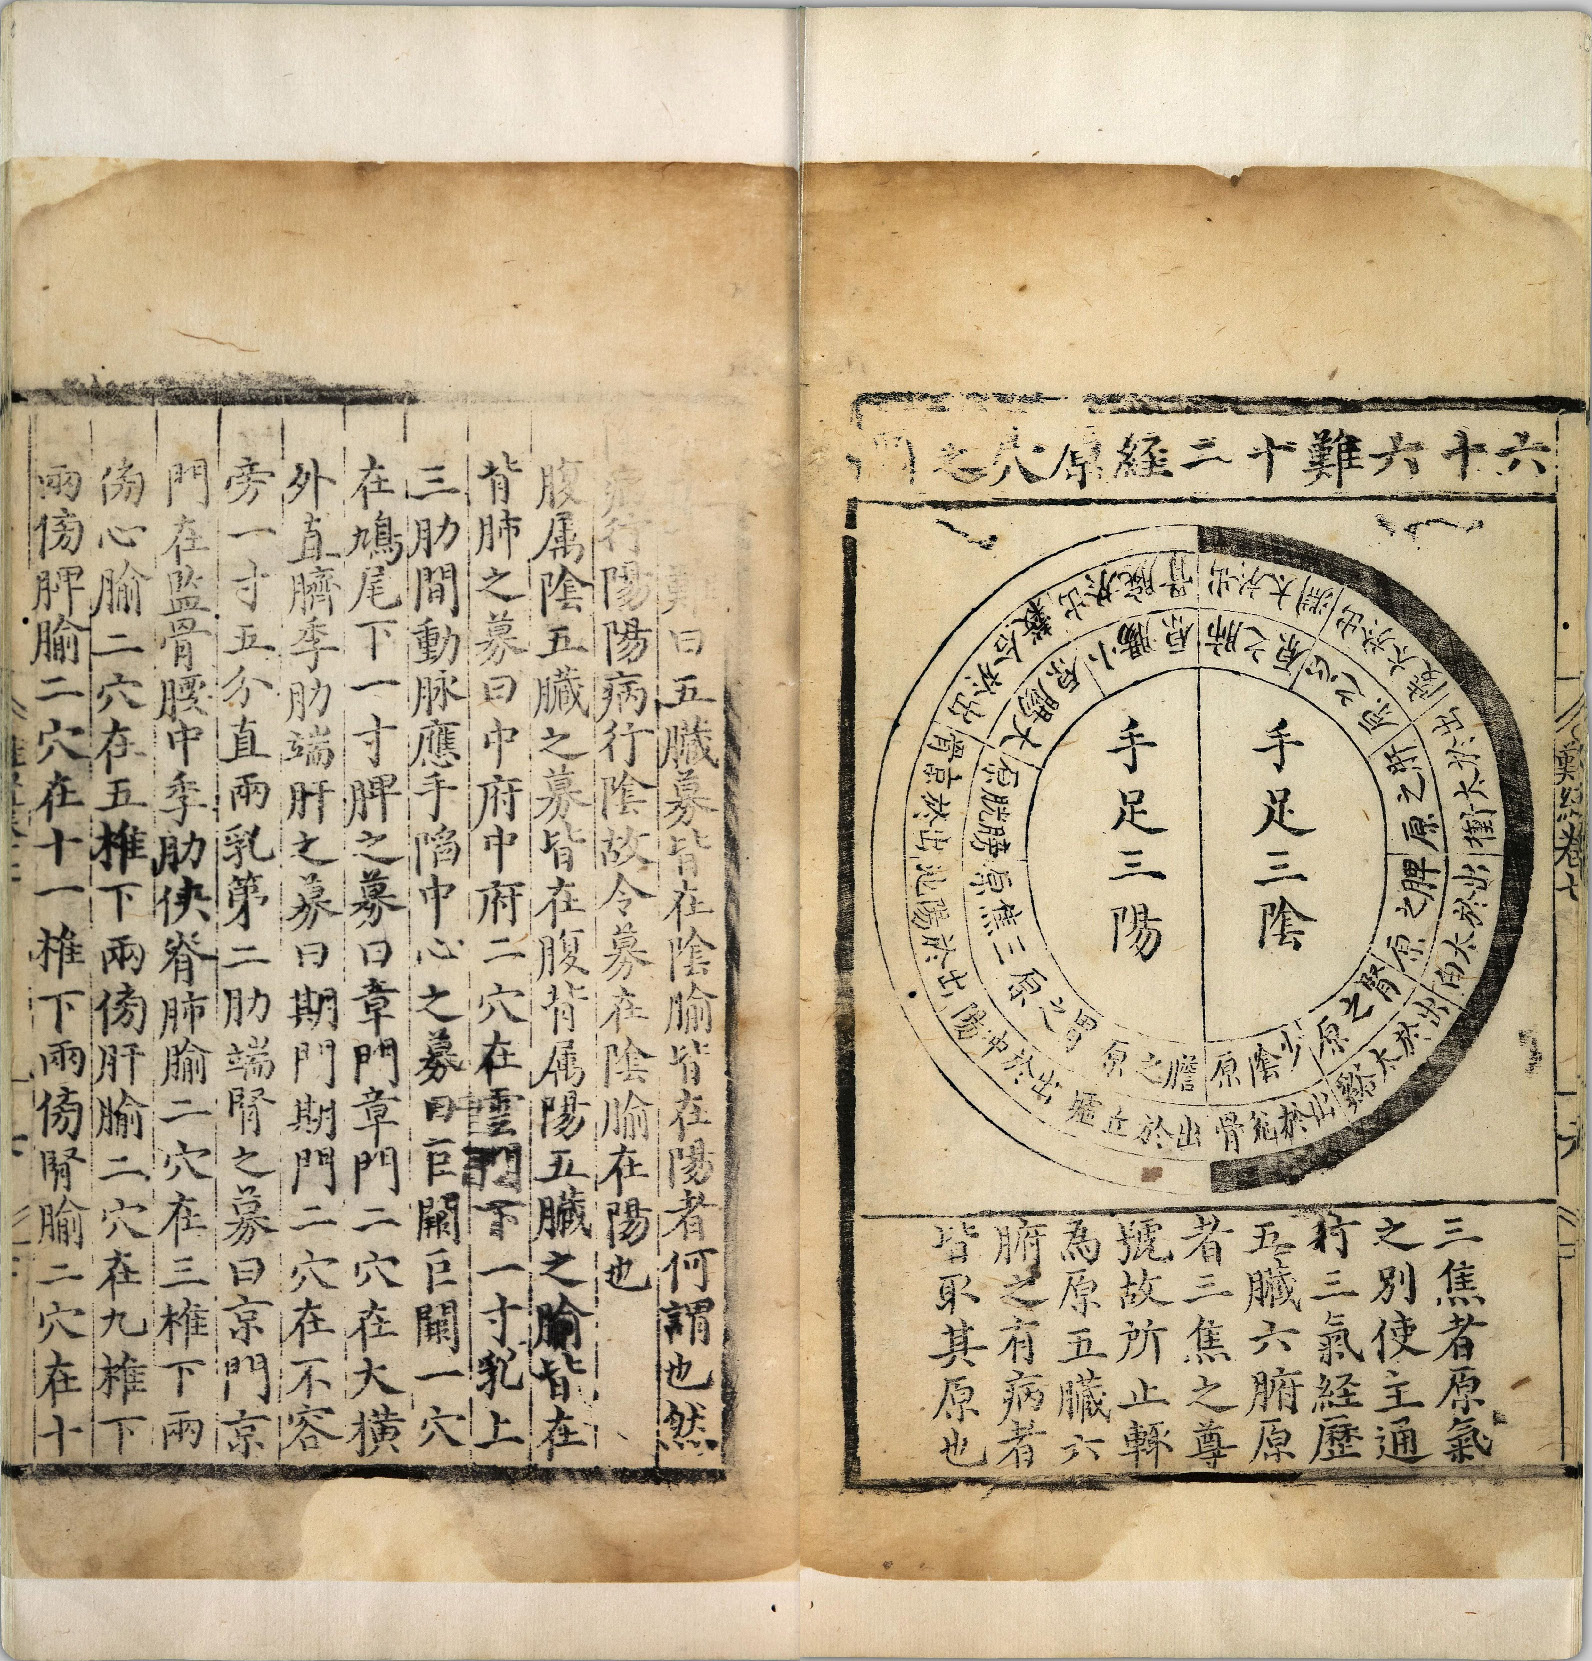 六十六難十二経原穴之圖
手足三陰
手足三陽
肺之原
出於太淵
心之原
出於大陵
肝之原
出於太衝
脾之原
出於太白
腎之原
出於太谿
少陰原
出於兊骨
膽之原
出於丘墟
胃之原
出於衝陽
三焦原
出於陽池
膀胱原
出於京骨
大腸原
出於合谷
小腸原
出於腕骨
三焦者原氣
之別使主通
行三氣経歷
五臓六腑原
者三焦之尊
號故所止輙
為原五臓六
腑之有病者
皆取其原也
難経卷七
難曰五臓募皆在陰腧皆在陽者何謂也然
病行陽陽病行陰故令募在陰腧在陽也
腹属陰五臓之募皆在腹背属陽五臓之腧皆在
背肺之募曰中府中府二穴在雲門下一寸乳上
三肋間動脉應手陷中心之募曰巨闕巨闕一穴
在鳩尾下一寸脾之募曰章門章門二穴在大横
外直臍季肋端肝之募曰期門期門二穴在不容
旁一寸五分直兩乳第二肋端腎之募曰京門京
門在監骨腰中季肋俠脊肺腧二穴在三椎下兩
傍心腧二穴在五椎下兩傍肝腧二穴在九椎下
兩傍脾腧二穴在十一椎下兩傍腎腧二穴在十